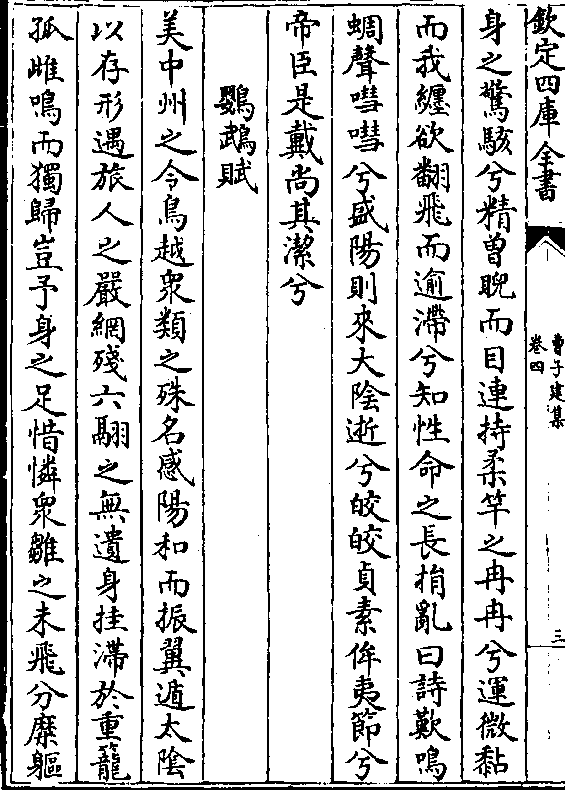 欽定四庫全書
曹子建集
卷四
三
身之驚駭兮精曾睨而目連持柔竿之冉冉兮運微黏
而我纏欲翻飛而逾滯兮知性命之長捐亂曰詩歎鳴
蜩聲嘒嘒兮盛陽則來大陰逝兮皎皎貞素侔夷節兮
帝臣是戴尚其潔兮
鸚鵡賦
美中州之令鳥越衆類之殊名感陽和而振翼遁太陰
以存形遇旅人之嚴網殘六翮之無遺身挂滯於重籠
孤雌鳴而獨歸豈予身之足惜憐衆雛之未飛分糜軀